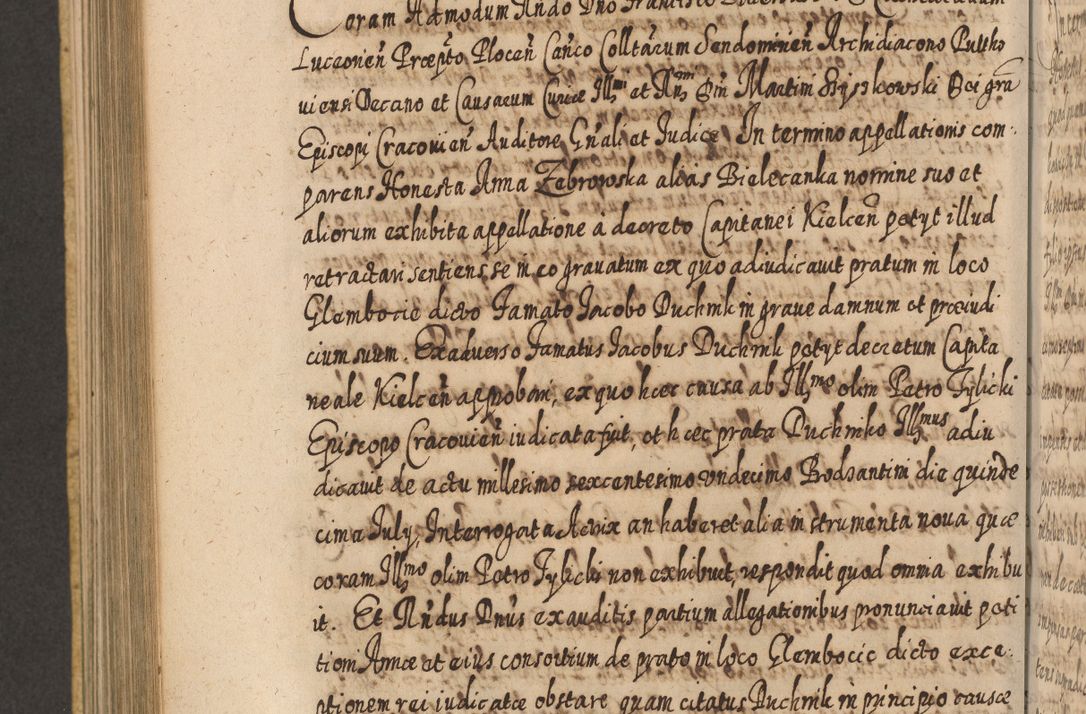 Coram Admodum Rndo Dno Francisco
Luceorien Præpto Plocen Canco Colltarum Sendomirien Archidiacono Pultho
viensi Decano et Causarum Curiæ Illmi et Rmi Dni Martini Szyszkowski Dei gra
Episcopi Cracovien Auditore Gnali et Iudice. In termino appellationis com-
parens Honesta Anna Zebrowska alias Bielecanka nomine suo et
aliorum exhibita appellatione à decreto Capitanei Kielcen petyt illud
retractari sentiens se in eo gravatum ex quo adiudicavit pratum in loco
Glembocie dicto Famato Jacobo Duchnik in grave damnum et præiudi
cium suum. Ex adverso Famatus Jacobus Duchnik petyt decretum Capita
neale Kielcen approbari, ex quo hæc causa ab Illmo olim Petro Tylicki
Episcopo Cracovien iudicata fuit, et hæc prata Duchniko Illmus adiu
dicavit de actu millesimo sexcentesimo undecimo Bodzantini die quinde
cima July, Interrogata Actrix an haberet alia instrumenta nova quæ
coram Illmo olim Petro Tylicki non exhibuit, respondit quod omnia exhibu
it. Et Rndus Dnus exauditis partium allegationibus pronunciavit peti
tioni Annæ et eius consortium de prato in loco Glembocie dicto exce-
ptionem rei iudicatæ obstare quam citatus Duchnik in principio causæ